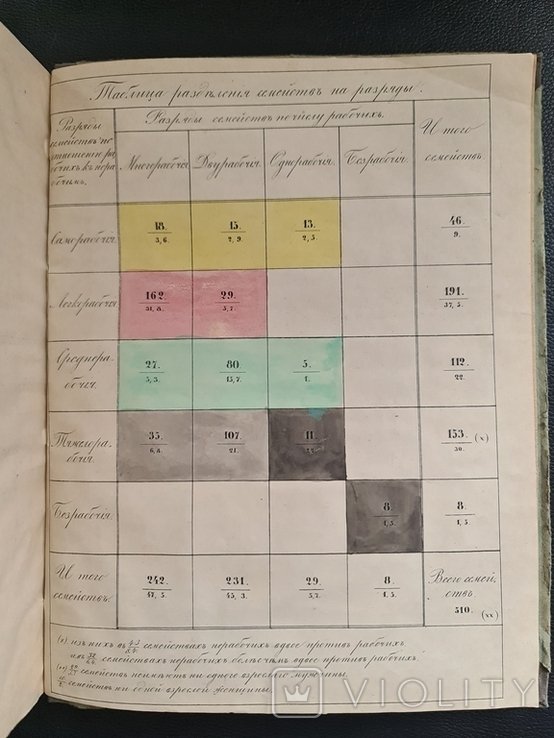 Таблица раздѣленія семействъ на разряды.
Разряды семействъ по отношенію рабочихъ къ нерабочимъ.
Разряды семействъ по числу рабочихъ.
Итого семействъ.
Многорабочія. Двурабочія. Однорабочія. Безрабочія.
Саморабочія. 18. 3,6. 15. 2,9. 13. 2,5. 46. 9.
Легкорабочія. 162. 31,8. 29. 5,7. 191. 37,5.
Среднерабочія. 27. 5,3. 80. 15,7. 5. 1. 112. 22.
Тяжелорабочія. 35. 6,8. 107. 21. 11. 153. 30. (х)
Безрабочія. 8. 1,5. 8. 1,5.
Итого семействъ. 242. 47,5. 231. 45,3. 29. 5,7. 8. 1,5. Всего семействъ 510. (хх)
(х) изъ нихъ въ семействахъ нерабочихъ вдвое противъ рабочихъ
семействахъ нерабочихъ болѣе чѣмъ вдвое противъ рабочихъ.
(хх) семействъ неимѣютъ ни одного взрослаго мужчины.
семействъ ни одной взрослой женщины.
VIOLITY